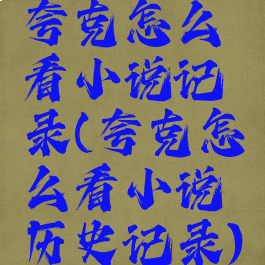 夸克怎么
看小说记
录(夸克怎
么看小说
历史记录)